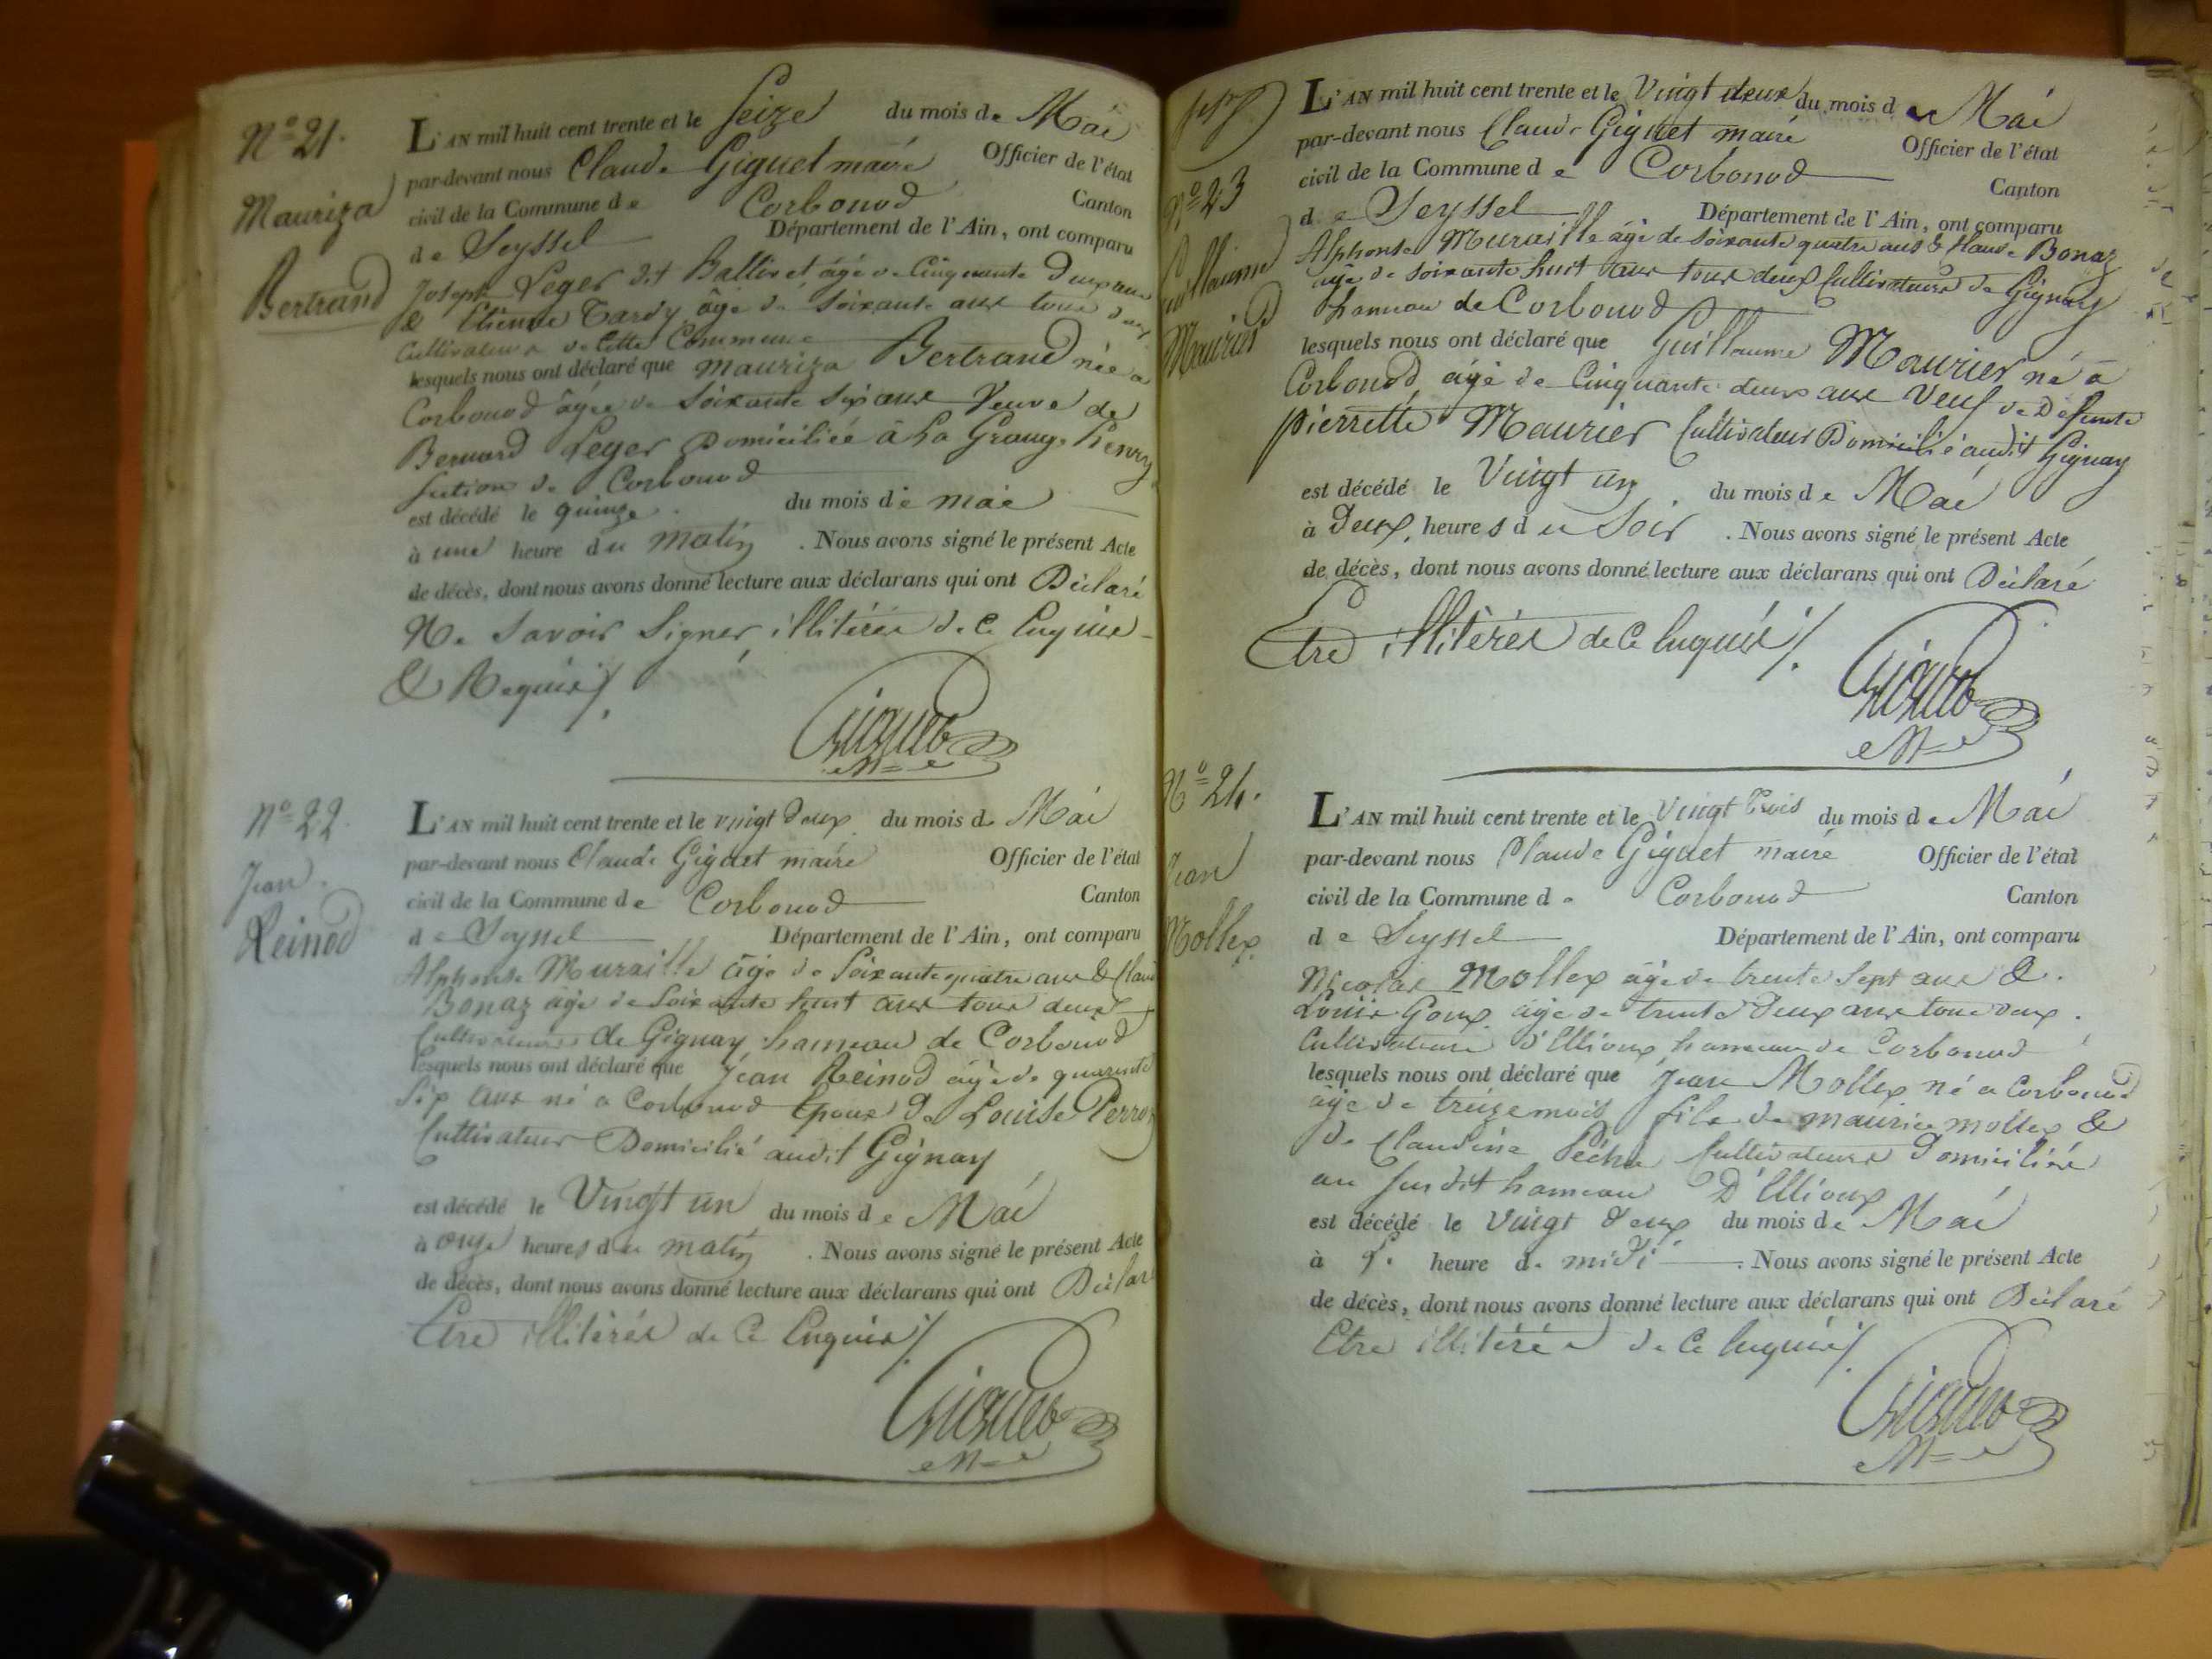 N° 21.
Mauriza
Bertrand
L'AN mil huit cent trente et le Seize du mois de Mai
par-devant nous Claude Giguet maire Officier de l'état
civil de la Commune de Corbonod Canton
de Seyssel Département de l'Ain, ont comparu
Joseph Leger dit Ballivet âgé de Cinquante Deux ans
& Etienne Tardy âgé de Soixante ans tous deux
Cultivateurs de Cette Commune
lesquels nous ont déclaré que Mauriza Bertrand née a
Corbonod âgée de Soixante Six ans Veuve de
Bernard Leger Domiciliée à La Grange henry
Section de Corbonod
est décédé le quinze du mois de mai
à une heure du matin. Nous avons signé le présent Acte
de décès, dont nous avons donné lecture aux déclarans qui ont Déclaré
Ne Savoir Signer illitérés de Ce Enquis
& Requis /.
Giguet
N° 22.
Jean
Reinod
L'AN mil huit cent trente et le vingt Deux du mois de Mai
par-devant nous Claude Giguet maire Officier de l'état
civil de la Commune de Corbonod Canton
de Seyssel Département de l'Ain, ont comparu
Alphonse Muraille âgé de Soixante quatre ans &
Bonaz âgé de Soixante huit ans tous deux
Cultivateurs de Gignay hameau de Corbonod
lesquels nous ont déclaré que Jean Reinod âgé de quarante
Six ans né a Corbonod Epoux De Louise Perroz
Cultivateur Domicilié audit Gignay
est décédé le Vingt un du mois de Mai
à onze heures du matin. Nous avons signé le présent Acte
de décès, dont nous avons donné lecture aux déclarans qui ont Déclaré
Etre illitérés de Ce Enquis /.
Giguet
N° 23
Guillaume
Maurier
L'AN mil huit cent trente et le Vingt deux du mois de Mai
par-devant nous Claude Giguet maire Officier de l'état
civil de la Commune de Corbonod Canton
de Seyssel Département de l'Ain, ont comparu
Alphonse Muraille âgé de Soixante quatre ans & Claude Bonaz
âgé de Soixante huit ans tous deux Cultivateurs de Gignay
hameau de Corbonod
lesquels nous ont déclaré que Guillaume Maurier né a
Corbonod, âgé de Cinquante deux ans Veuf de Défunte
Pierrette Maurier Cultivateur Domicilié audit Gignay
est décédé le Vingt un du mois de Mai
à Deux heures du Soir. Nous avons signé le présent Acte
de décès, dont nous avons donné lecture aux déclarans qui ont Déclaré
Etre illitérés de Ce Enquis /.
Giguet
N° 24.
Jean
Mollex
L'AN mil huit cent trente et le Vingt Trois du mois de Mai
par-devant nous Claude Giguet maire Officier de l'état
civil de la Commune de Corbonod Canton
de Seyssel Département de l'Ain, ont comparu
Nicolas Mollex âgé de trente Sept ans &
Louis Goux âgé de trente Deux ans tous deux
Cultivateurs d'Ellioux hameau de Corbonod
lesquels nous ont déclaré que Jean Mollex né a Corbonod
âgé de treize mois fils de Maurice mollex &
de Claudine Cultivateurs Domiciliés
au Susdit hameau D'Ellioux
est décédé le Vingt Deux du mois de Mai
à heure de midi. Nous avons signé le présent Acte
de décès, dont nous avons donné lecture aux déclarans qui ont Déclaré
Etre illitérés de Ce Enquis /.
Giguet